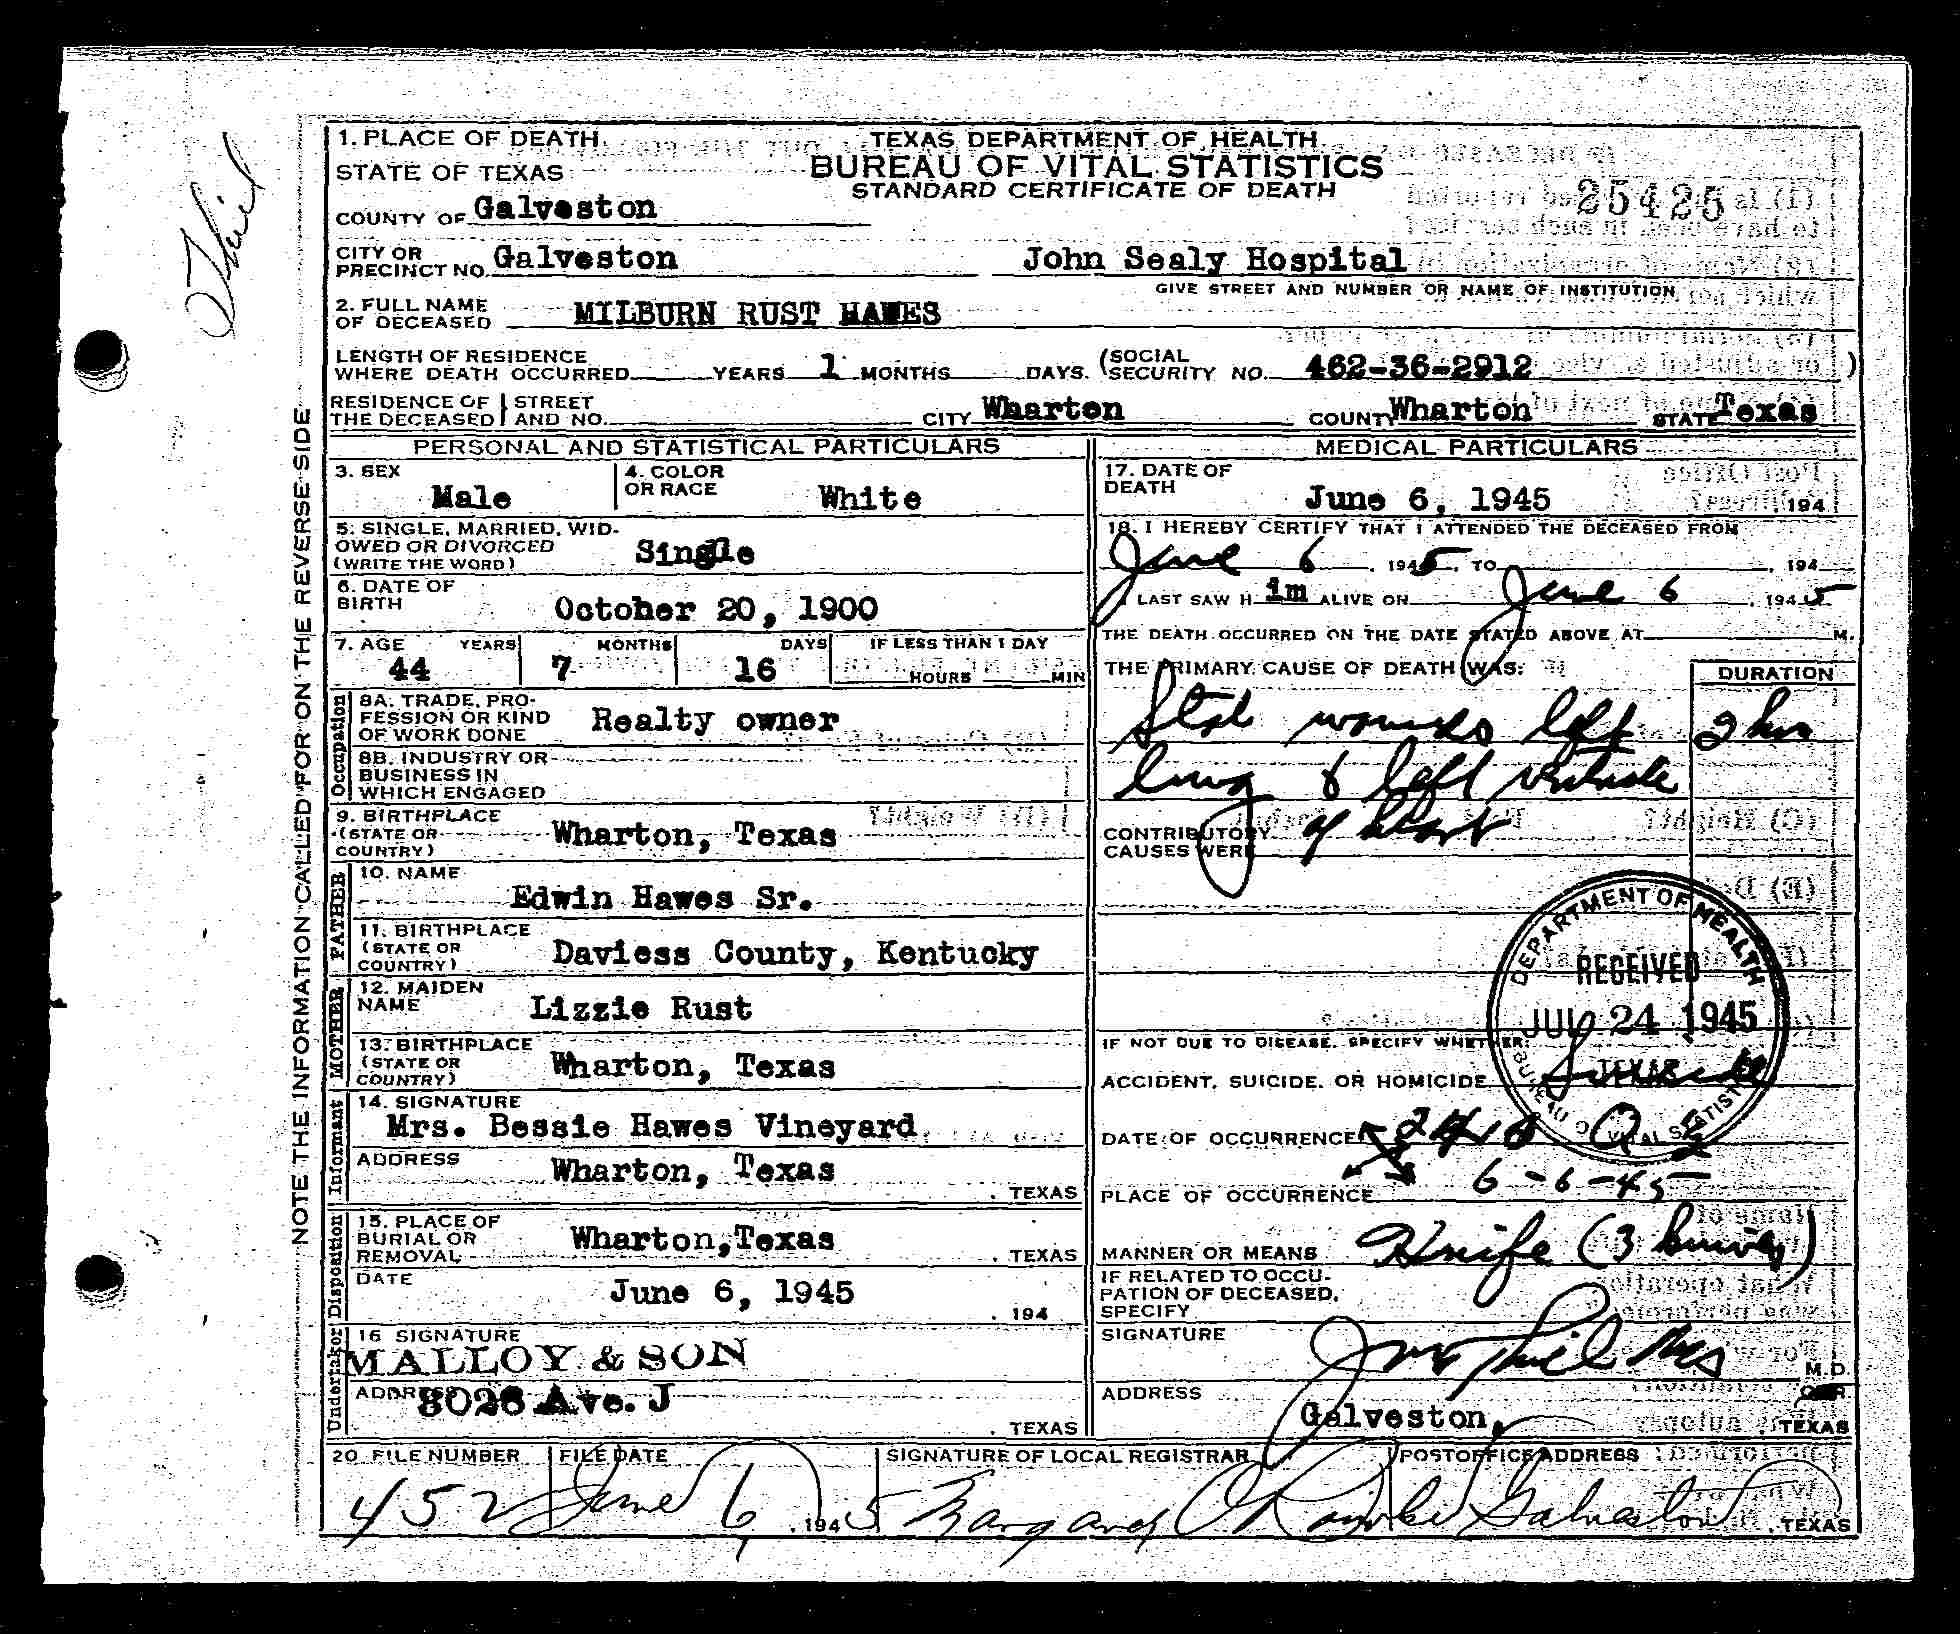 1. PLACE OF DEATH
STATE OF TEXAS
COUNTY OF Galveston
TEXAS DEPARTMENT OF HEALTH
BUREAU OF VITAL STATISTICS
STANDARD CERTIFICATE OF DEATH
25425
CITY OR
PRECINCT NO. Galveston John Sealy Hospital
GIVE STREET AND NUMBER OR NAME OF INSTITUTION
2. FULL NAME
OF DECEASED MILBURN RUST HAWES
LENGTH OF RESIDENCE
WHERE DEATH OCCURRED YEARS 1 MONTHS DAYS. (SOCIAL SECURITY NO. 462-36-2912 )
RESIDENCE OF THE DECEASED STREET AND NO. CITY Wharton COUNTY Wharton STATE Texas
NOTE THE INFORMATION CALLED FOR ON THE REVERSE SIDE
PERSONAL AND STATISTICAL PARTICULARS
3. SEX Male
4. COLOR OR RACE White
5. SINGLE, MARRIED, WID-
OWED OR DIVORCED
(WRITE THE WORD) Single
6. DATE OF
BIRTH October 20, 1900
7. AGE YEARS MONTHS DAYS IF LESS THAN 1 DAY
44 7 16 HOURS MIN
Occupation
8A. TRADE, PRO-
FESSION OR KIND
OF WORK DONE Realty owner
8B. INDUSTRY OR
BUSINESS IN
WHICH ENGAGED
9. BIRTHPLACE
(STATE OR
COUNTRY) Wharton, Texas
FATHER
10. NAME
Edwin Hawes Sr.
11. BIRTHPLACE
(STATE OR
COUNTRY) Daviess County, Kentucky
MOTHER
12. MAIDEN
NAME Lizzie Rust
13. BIRTHPLACE
(STATE OR
COUNTRY) Wharton, Texas
Informant
14. SIGNATURE
Mrs. Bessie Hawes Vineyard
ADDRESS Wharton, Texas
. TEXAS
Disposition
15. PLACE OF
BURIAL OR
REMOVAL Wharton,Texas . TEXAS
DATE June 6, 1945 . 194
Undertaker
16 SIGNATURE
MALLOY & SON
ADDRESS 3026 Ave. J
. TEXAS
MEDICAL PARTICULARS
17. DATE OF
DEATH June 6, 1945 194
18. I HEREBY CERTIFY THAT I ATTENDED THE DECEASED FROM
June 6 , 1945, TO , 194
I LAST SAW H im ALIVE ON June 6 , 1945
THE DEATH OCCURRED ON THE DATE STATED ABOVE AT M.
THE PRIMARY CAUSE OF DEATH WAS: DURATION
Stab wounds left 2 hrs
lung & left ventricle
CONTRIBUTORY
CAUSES WERE of heart
DEPARTMENT OF HEALTH
RECEIVED
JUL 24 1945
TEXAS
BUREAU OF VITAL STATISTICS
IF NOT DUE TO DISEASE, SPECIFY WHETHER:
ACCIDENT, SUICIDE, OR HOMICIDE Suicide
DATE OF OCCURRENCE
6-6-45
PLACE OF OCCURRENCE
MANNER OR MEANS Knife
IF RELATED TO OCCU-
PATION OF DECEASED,
SPECIFY
SIGNATURE M.D.
ADDRESS
Galveston, , TEXAS
20 FILE NUMBER FILE DATE SIGNATURE OF LOCAL REGISTRAR POSTOFFICE ADDRESS
452 June 6, 1945 Galveston , TEXAS